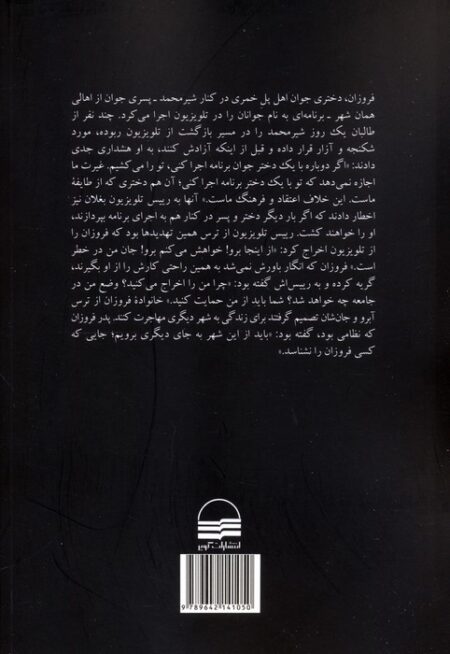 فروزان، دختری جوان اهل پل خمری در کنار شیرمحمد ـ پسری جوان از اهالی
همان شهر ـ برنامه‌ای به نام جوانان را در تلویزیون اجرا می‌کرد. چند نفر از
طالبان یک روز شیرمحمد را در مسیر بازگشت از تلویزیون ربوده، مورد
شکنجه و آزار قرار داده و قبل از اینکه آزادش کنند، به او هشداری جدی
دادند: «اگر دوباره با یک دختر جوان برنامه اجرا کنی، تو را می‌کشیم. غیرت ما
اجازه نمی‌دهد که تو با یک دختر برنامه اجرا کنی؛ آن هم دختری که از طایفهٔ
ماست. این خلاف اعتقاد و فرهنگ ماست.» آنها به رییس تلویزیون بغلان نیز
اخطار دادند که اگر بار دیگر دختر و پسر در کنار هم به اجرای برنامه بپردازند،
او را خواهند کشت. رییس تلویزیون از ترس همین تهدیدها بود که فروزان را
از تلویزیون اخراج کرد: «از اینجا برو! خواهش می‌کنم برو! جان من در خطر
است.» فروزان که انگار باورش نمی‌شد به همین راحتی کارش را از او بگیرند،
گریه کرده و به رییس‌اش گفته بود: «چرا من را اخراج می‌کنید؟ وضع من در
جامعه چه خواهد شد؟ شما باید از من حمایت کنید.» خانوادهٔ فروزان از ترس
آبرو و جان‌شان تصمیم گرفتند برای زندگی به شهر دیگری مهاجرت کنند. پدر فروزان
که نظامی بود، گفته بود: «باید از این شهر به جای دیگری برویم؛ جایی که
کسی فروزان را نشناسد.»
انتشارات کویر
9789642141050